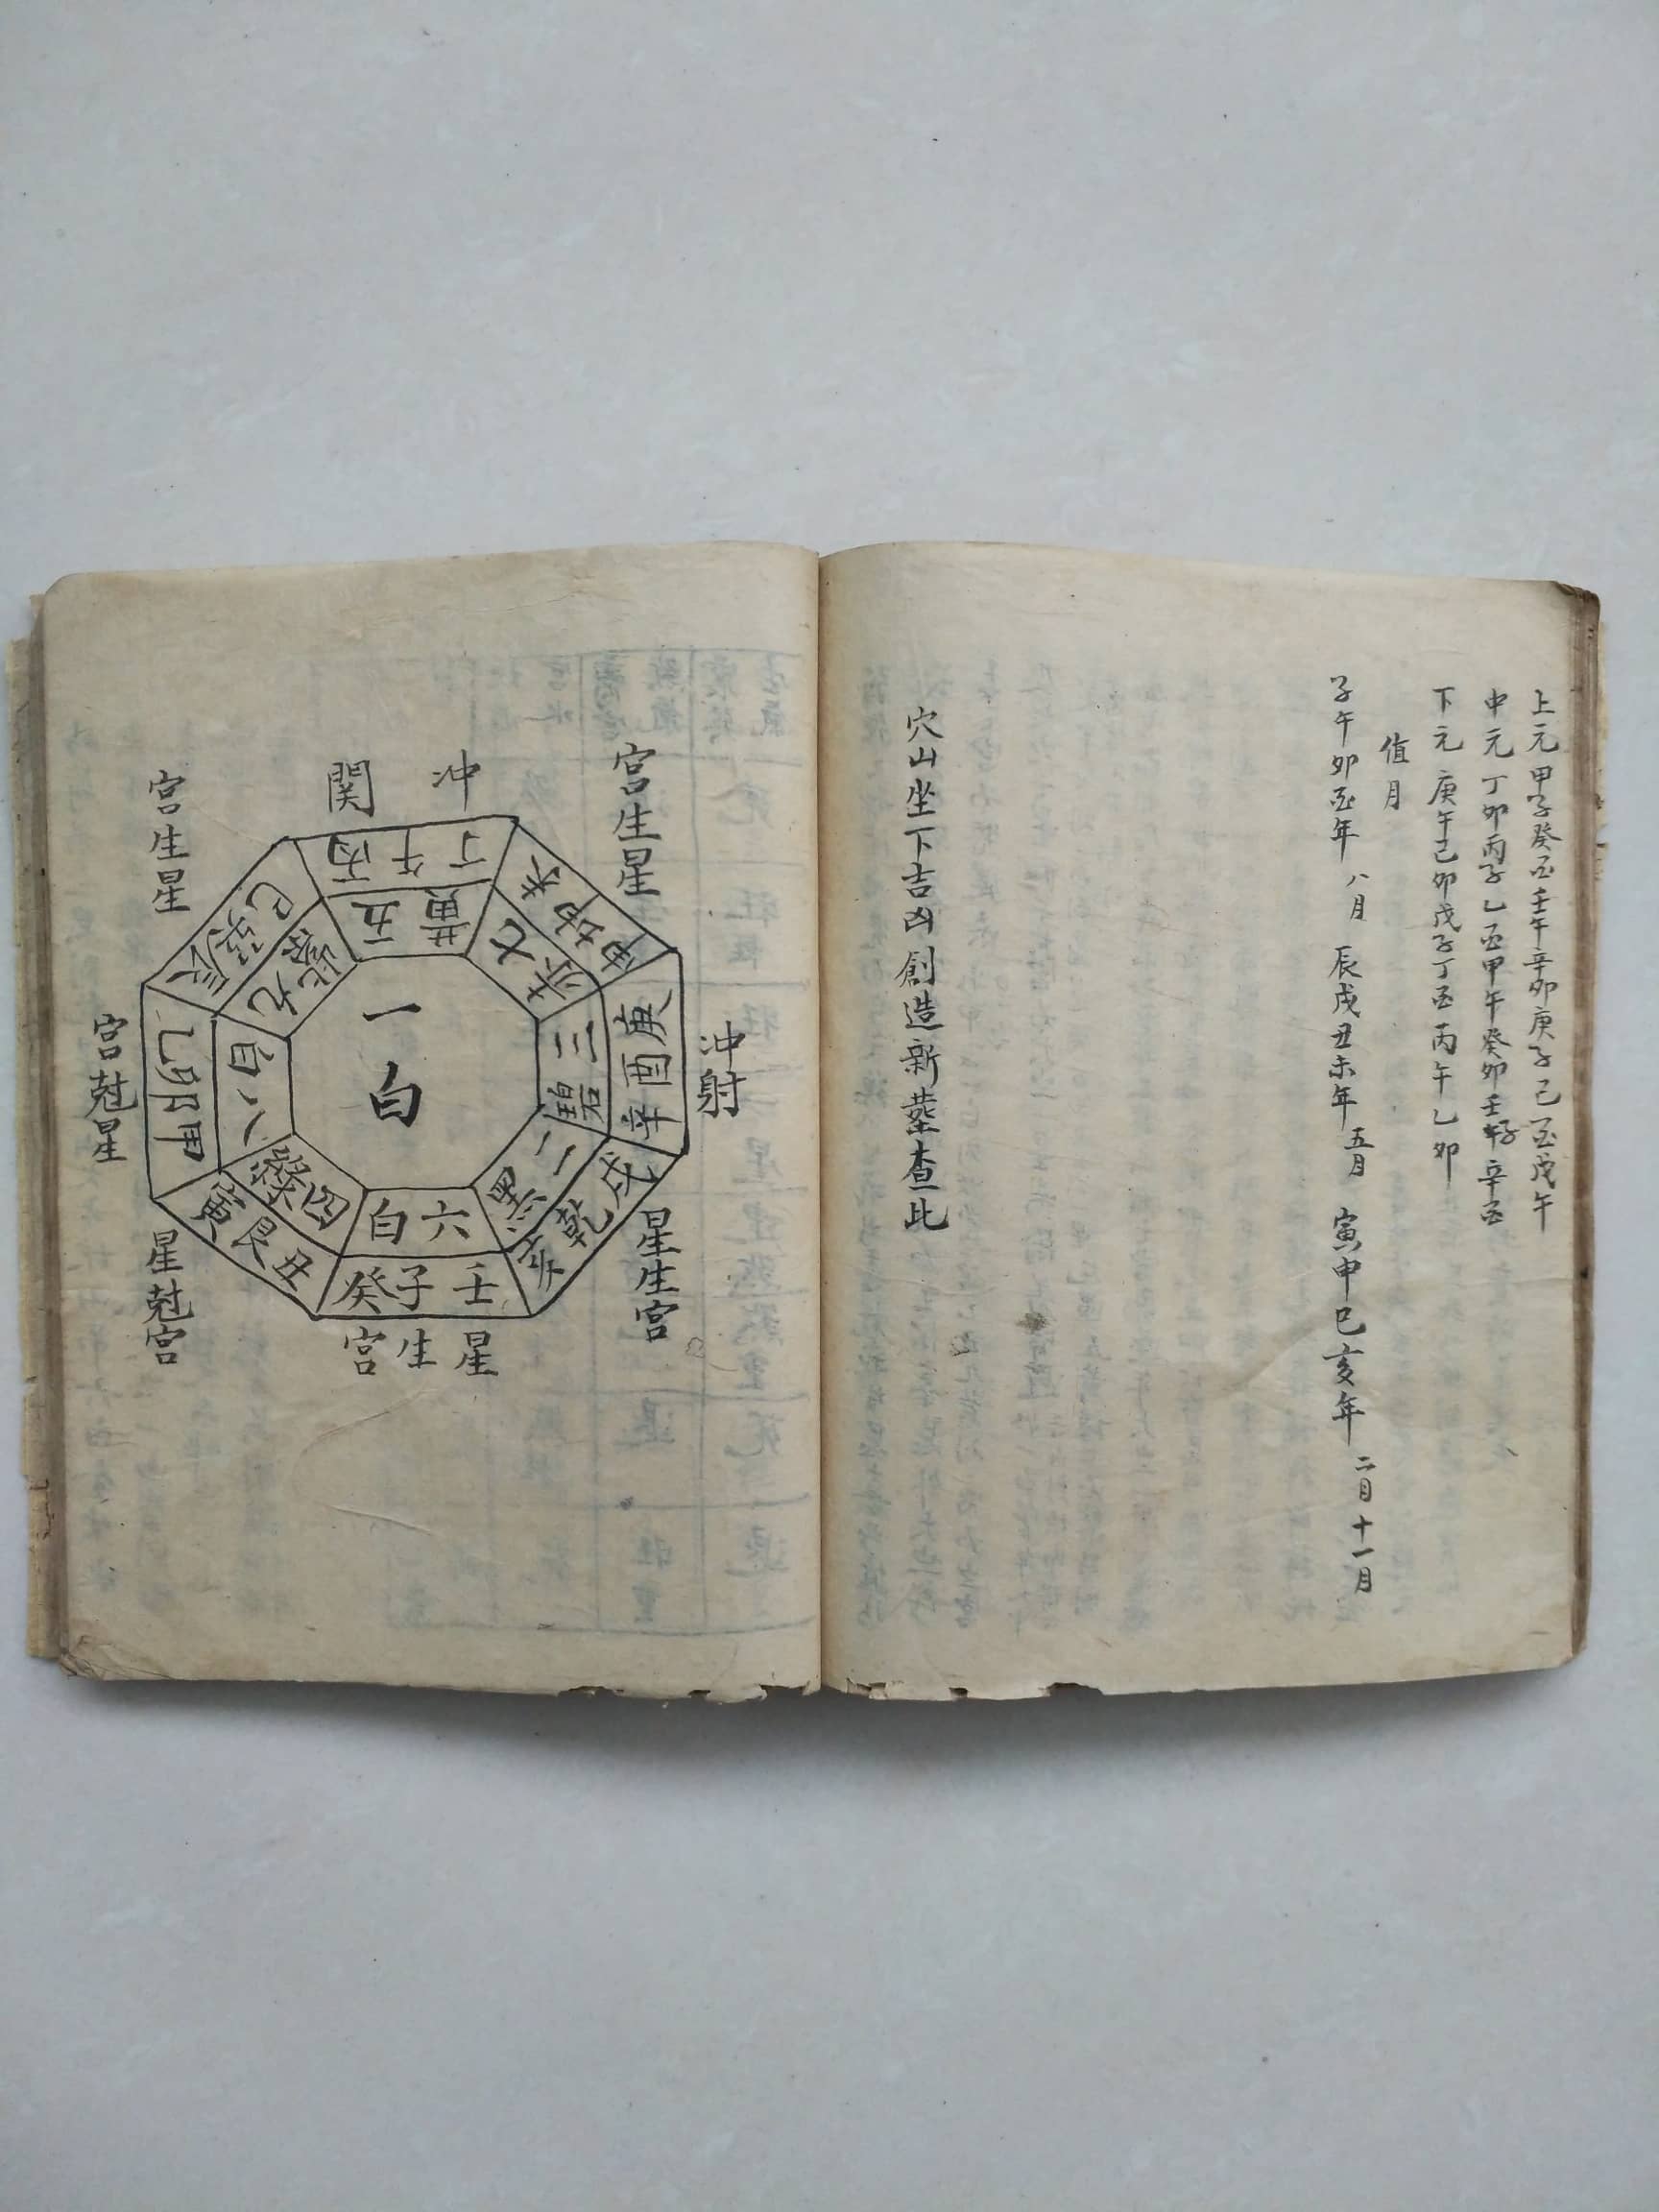 上元 甲子癸酉壬午辛卯庚子己酉戊午
中元 丁卯丙子乙酉甲午癸卯壬子辛酉
下元 庚午己卯戊子丁酉丙午乙卯
值月
子午卯酉年 八月 辰戌丑未年 五月 寅申巳亥年 二月十一月
穴山坐下吉凶創造新塟查此
宮生星
冲関
宮生星
冲射
宮尅星
星生宮
星生宮
星尅宮
丙午丁
五黃
未坤申
七赤
庚酉辛
三碧
戌乾亥
二黑
壬子癸
六白
丑艮寅
四綠
甲卯乙
八白
辰巽巳
九紫
一白